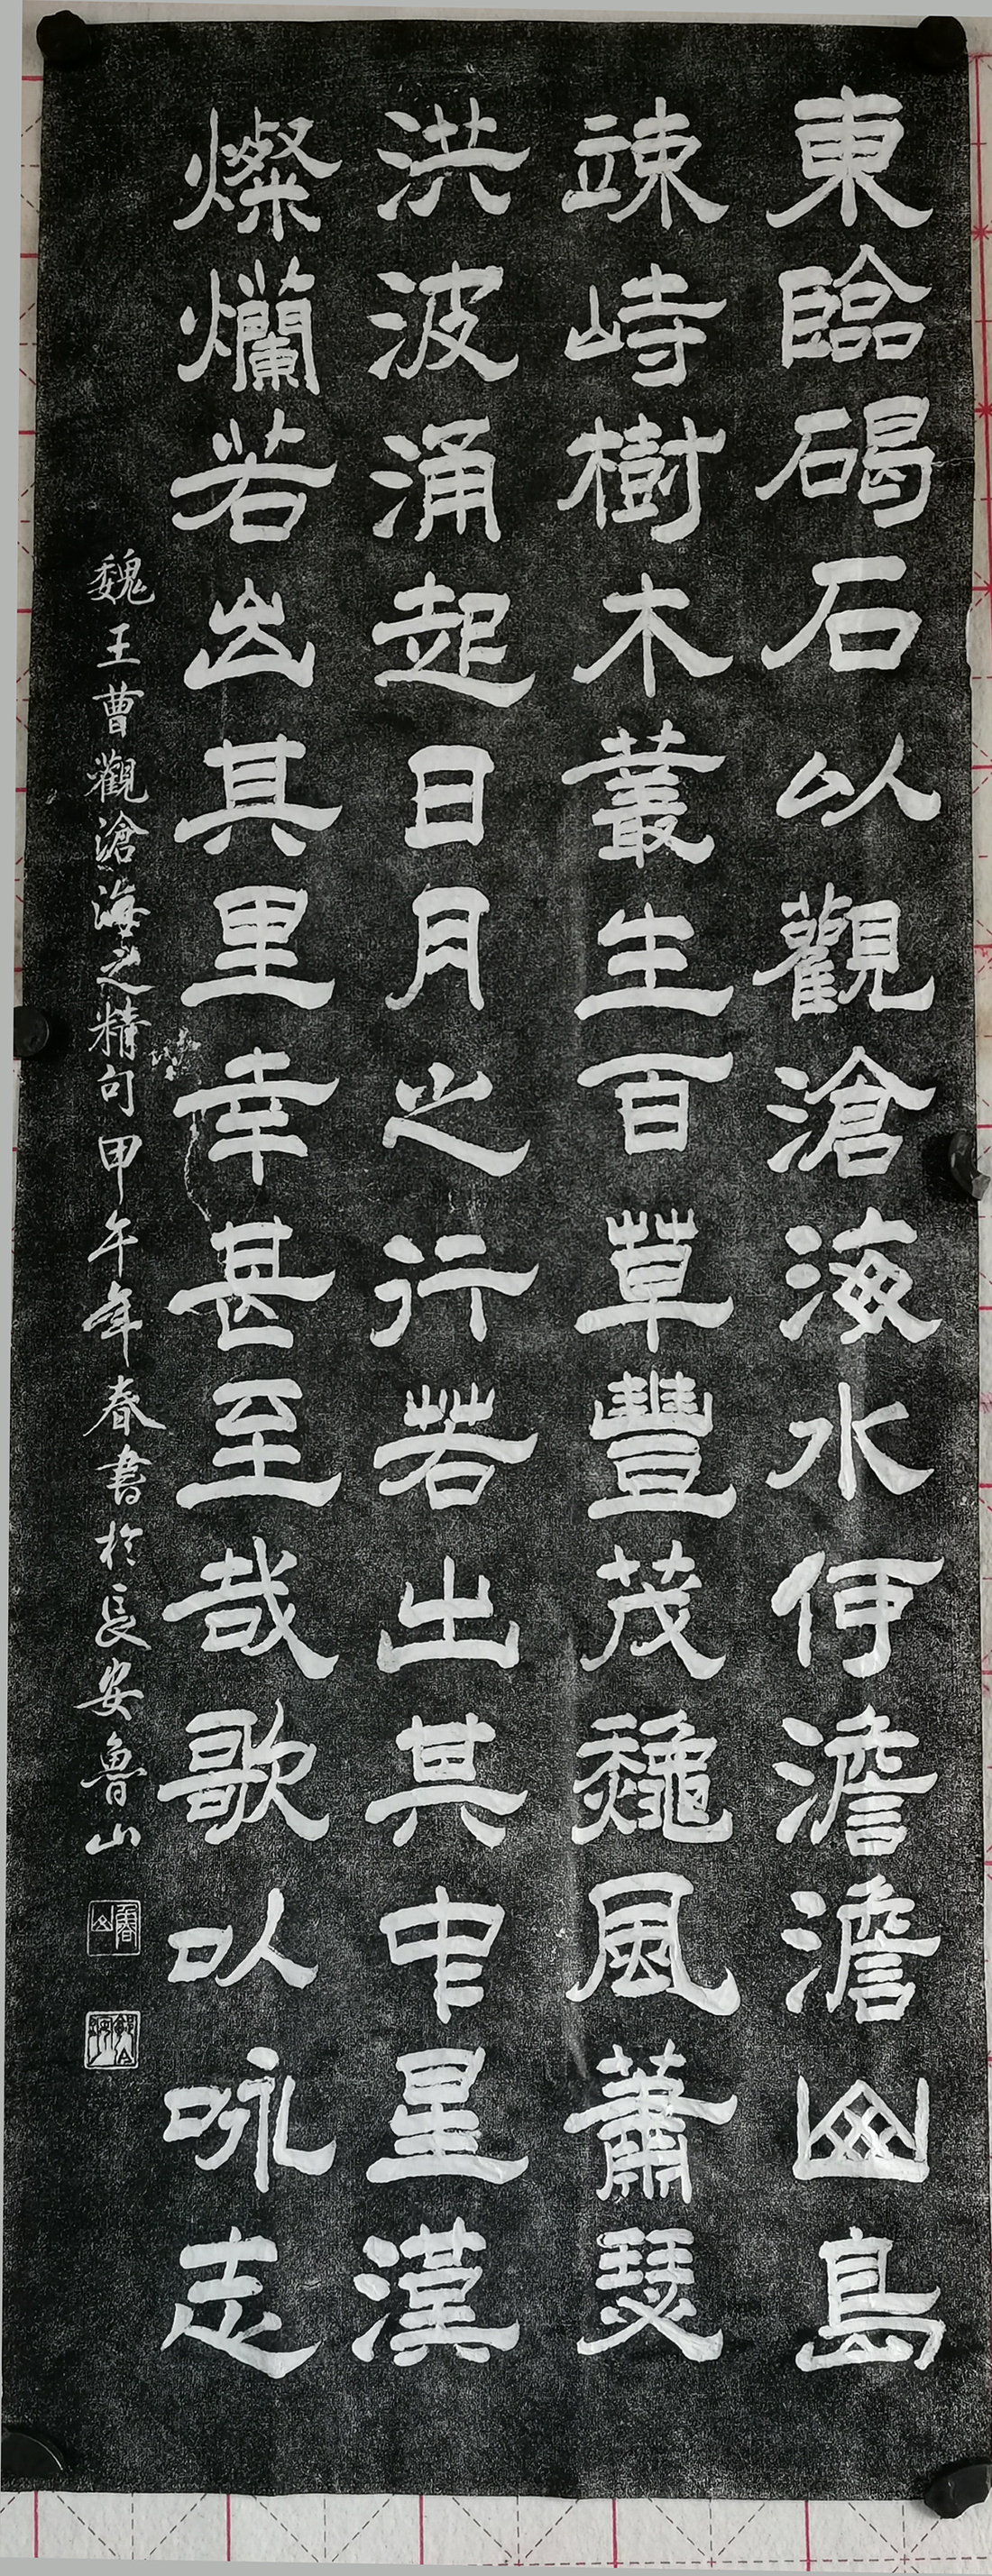 東臨碣石以觀滄海水何澹澹山島
竦峙樹木叢生百草豐茂龝風蕭瑟
洪波涌起日月之行若出其中星漢
燦爛若出其里幸甚至哉歌以咏志
魏王曹觀滄海之精句甲午年春書於長安魯山